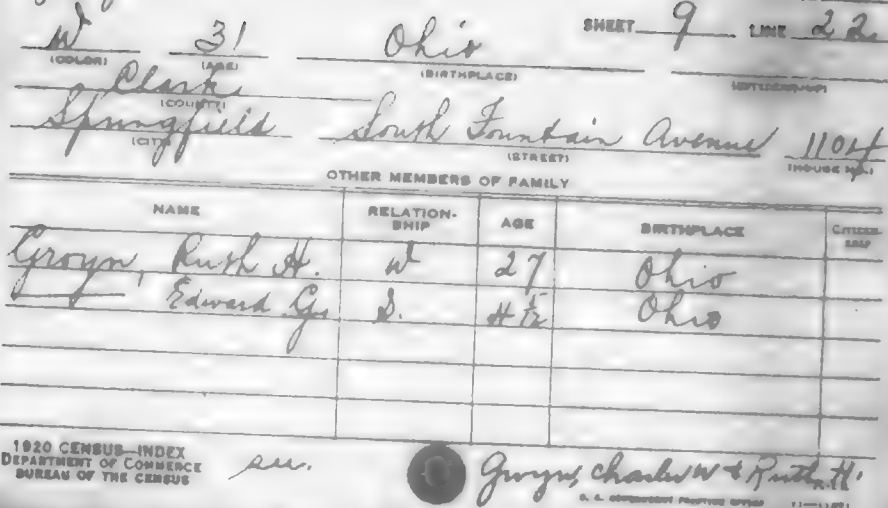 SHEET 9 LINE 22
W 31 Ohio
(COLOR) (AGE) (BIRTHPLACE) (CITIZENSHIP)
Clark
(COUNTY)
Springfield South Fountain Avenue 1104
(CITY) (STREET) (HOUSE NO.)
OTHER MEMBERS OF FAMILY
NAME RELATION-SHIP AGE BIRTHPLACE CITIZEN-SHIP
Groyn, Ruth H. W 27 Ohio
Edward G. S. Ohio
1920 CENSUS—INDEX
DEPARTMENT OF COMMERCE
BUREAU OF THE CENSUS
Gwyn, Charles W & Ruth H.
U. S. GOVERNMENT PRINTING OFFICE